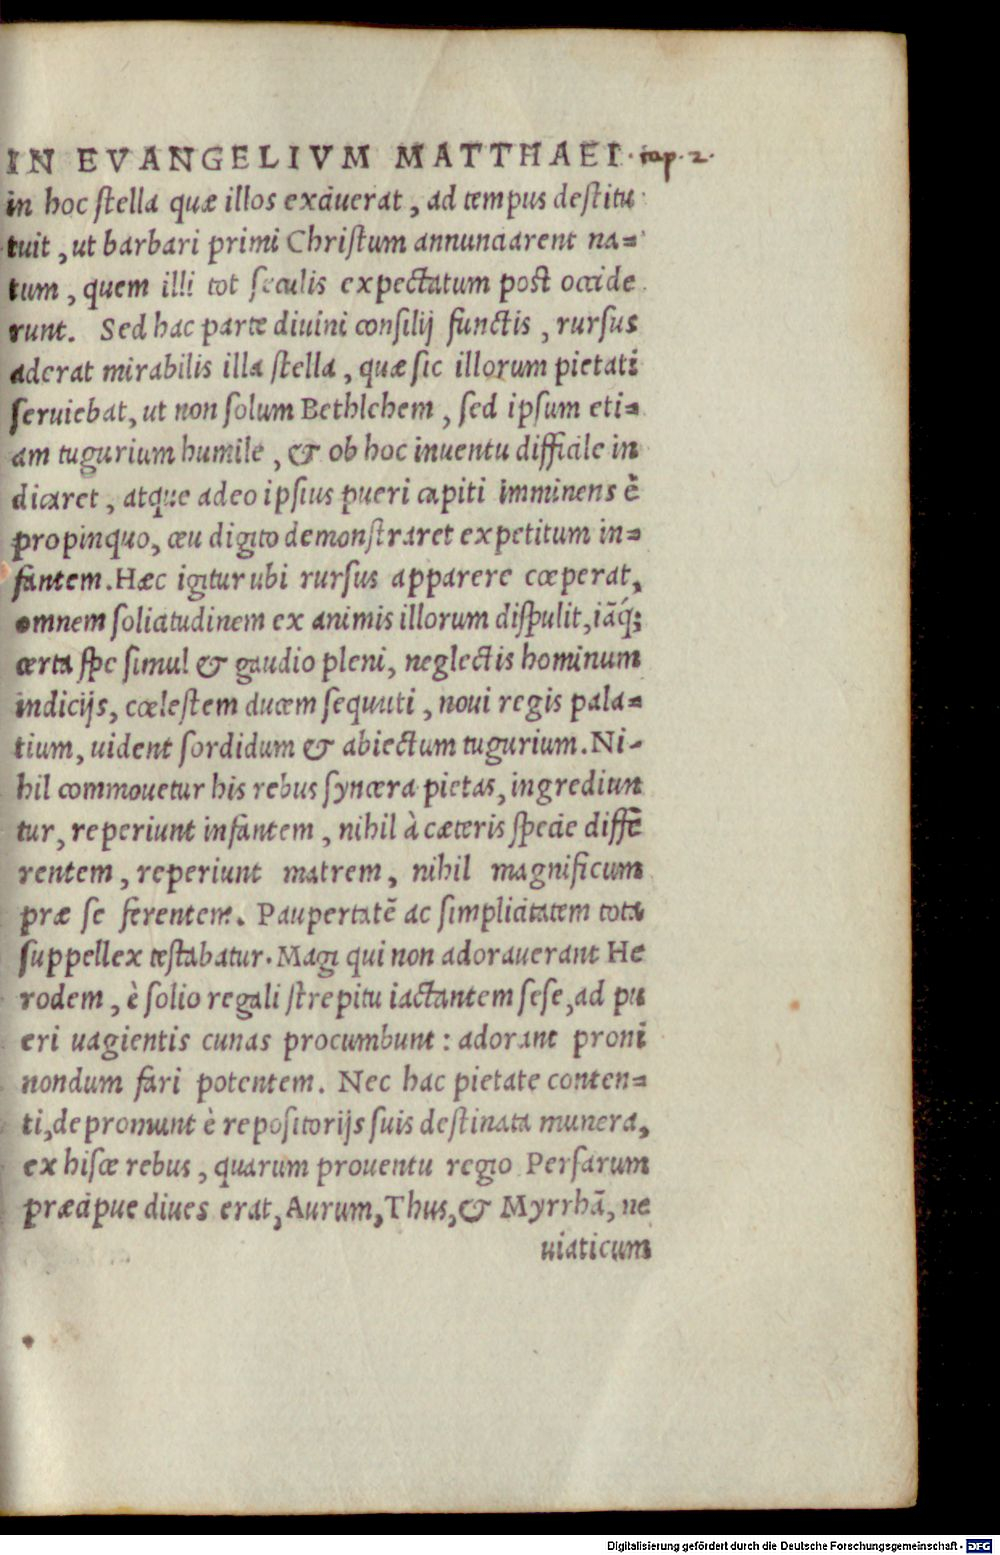 IN EVANGELIVM MATTHAEI. cap. 2.
in hoc stella quæ illos exciuerat, ad tempus destitu
tuit, ut barbari primi Christum annunciarent na=
tum, quem illi tot seculis expectatum post occide
runt. Sed hac parte diuini consilij functis, rursus
aderat mirabilis illa stella, quæ sic illorum pietati
seruiebat, ut non solum Bethlehem, sed ipsum eti=
am tugurium humile, & ob hoc inuentu difficile in
dicaret, atque adeo ipsius pueri capiti imminens è
propinquo, ceu digito demonstraret expetitum in=
fantem. Hæc igitur ubi rursus apparere cœperat,
omnem solicitudinem ex animis illorum dispulit, iāq́;
certa spe simul & gaudio pleni, neglectis hominum
indicijs, cœlestem ducem sequuti, noui regis pala=
tium, uident sordidum & abiectum tugurium. Ni-
hil commouetur his rebus syncera pietas, ingrediun
tur, reperiunt infantem, nihil à cæteris specie diffe
rentem, reperiunt matrem, nihil magnificum
præ se ferentem. Paupertatē ac simplicitatem tota
suppellex testabatur. Magi qui non adorauerant He
rodem, è solio regali strepitu iactantem sese, ad pu
eri uagientis cunas procumbunt: adorant proni
nondum fari potentem. Nec hac pietate conten=
ti, depromunt è repositorijs suis destinata munera,
ex hisce rebus, quarum prouentu regio Persarum
præcipue diues erat, Aurum, Thus, & Myrrhā, ne
uiaticum
Digitalisierung gefördert durch die Deutsche Forschungsgemeinschaft - DFG